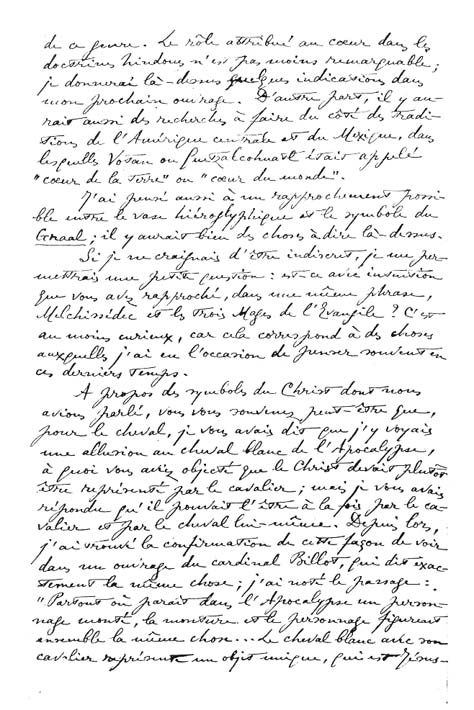 de ce genre. Le rôle attribué au cœur dans les
doctrines hindoues n'est pas moins remarquable;
je donnerai là-dessus quelques indications dans
mon prochain ouvrage. D'autre part, il y au-
rait aussi des recherches à faire du côté des tradi-
tions de l'Amérique centrale et du Mexique, dans
lesquelles Votan ou Quetzalcohuatl était appelé
"cœur de la terre" ou "cœur du monde".
J'ai pensé aussi à un rapprochement possi-
ble entre le vase hiéroglyphique et le symbole du
Graal; il y aurait bien des choses à dire là-dessus.
Si je ne craignais d'être indiscret, je me per-
mettrais une petite question: est-ce avec intention
que vous avez rapproché, dans une même phrase,
Melchissédec et les trois Mages de l'Evangile? C'est
au moins curieux, car cela correspond à des choses
auxquelles j'ai eu l'occasion de penser souvent en
ces derniers temps.
A propos des symboles du Christ dont nous
avions parlé, vous vous souvenez peut-être que,
pour le cheval, je vous avais dit que j'y voyais
une allusion au cheval blanc de l'Apocalypse,
à quoi vous aviez objecté que le Christ devait plutôt
être représenté par le cavalier; mais je vous avais
répondu qu'il pouvait l'être à la fois par le ca-
valier et par le cheval lui-même. Depuis lors,
j'ai trouvé la confirmation de cette façon de voir
dans un ouvrage du cardinal Billot, qui dit exac-
tement la même chose; j'ai noté le passage:
"Partout où paraît dans l'Apocalypse un person-
nage monté, la monture et le personnage figurent
ensemble la même chose... Le cheval blanc avec son
cavalier représente un objet unique, qui est Jésus-